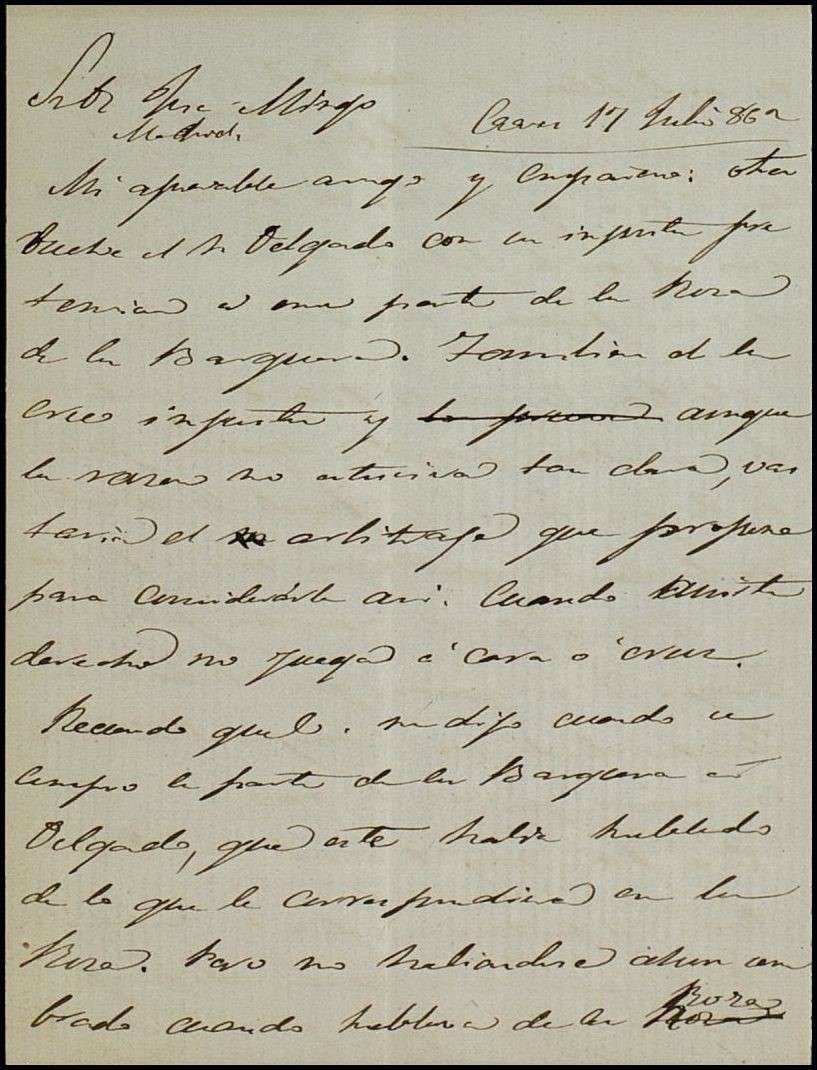 Sr Dn Jose Mingo
Madrid
17 Julio 862
Mi apreciable amigo y compañero: otra
vuelve el Sr Delgado con su injusta pre
tencion a una parte de la Roza
de la Barquera. Tambien el la
cree injusta y aunque
la razon no estuviera tan clara, vas
taria el arbitrage que propone
para considerarla asi. Cuando
derecho no juega á cara ó cruz.
Recuerdo que . me dijo cuando se
compro la parte de la Barquera á
Delgado, que este habia hablado
de lo que le correspondiera en la
Roza. Pero no habiendose
brado cuando hablara de la Roza